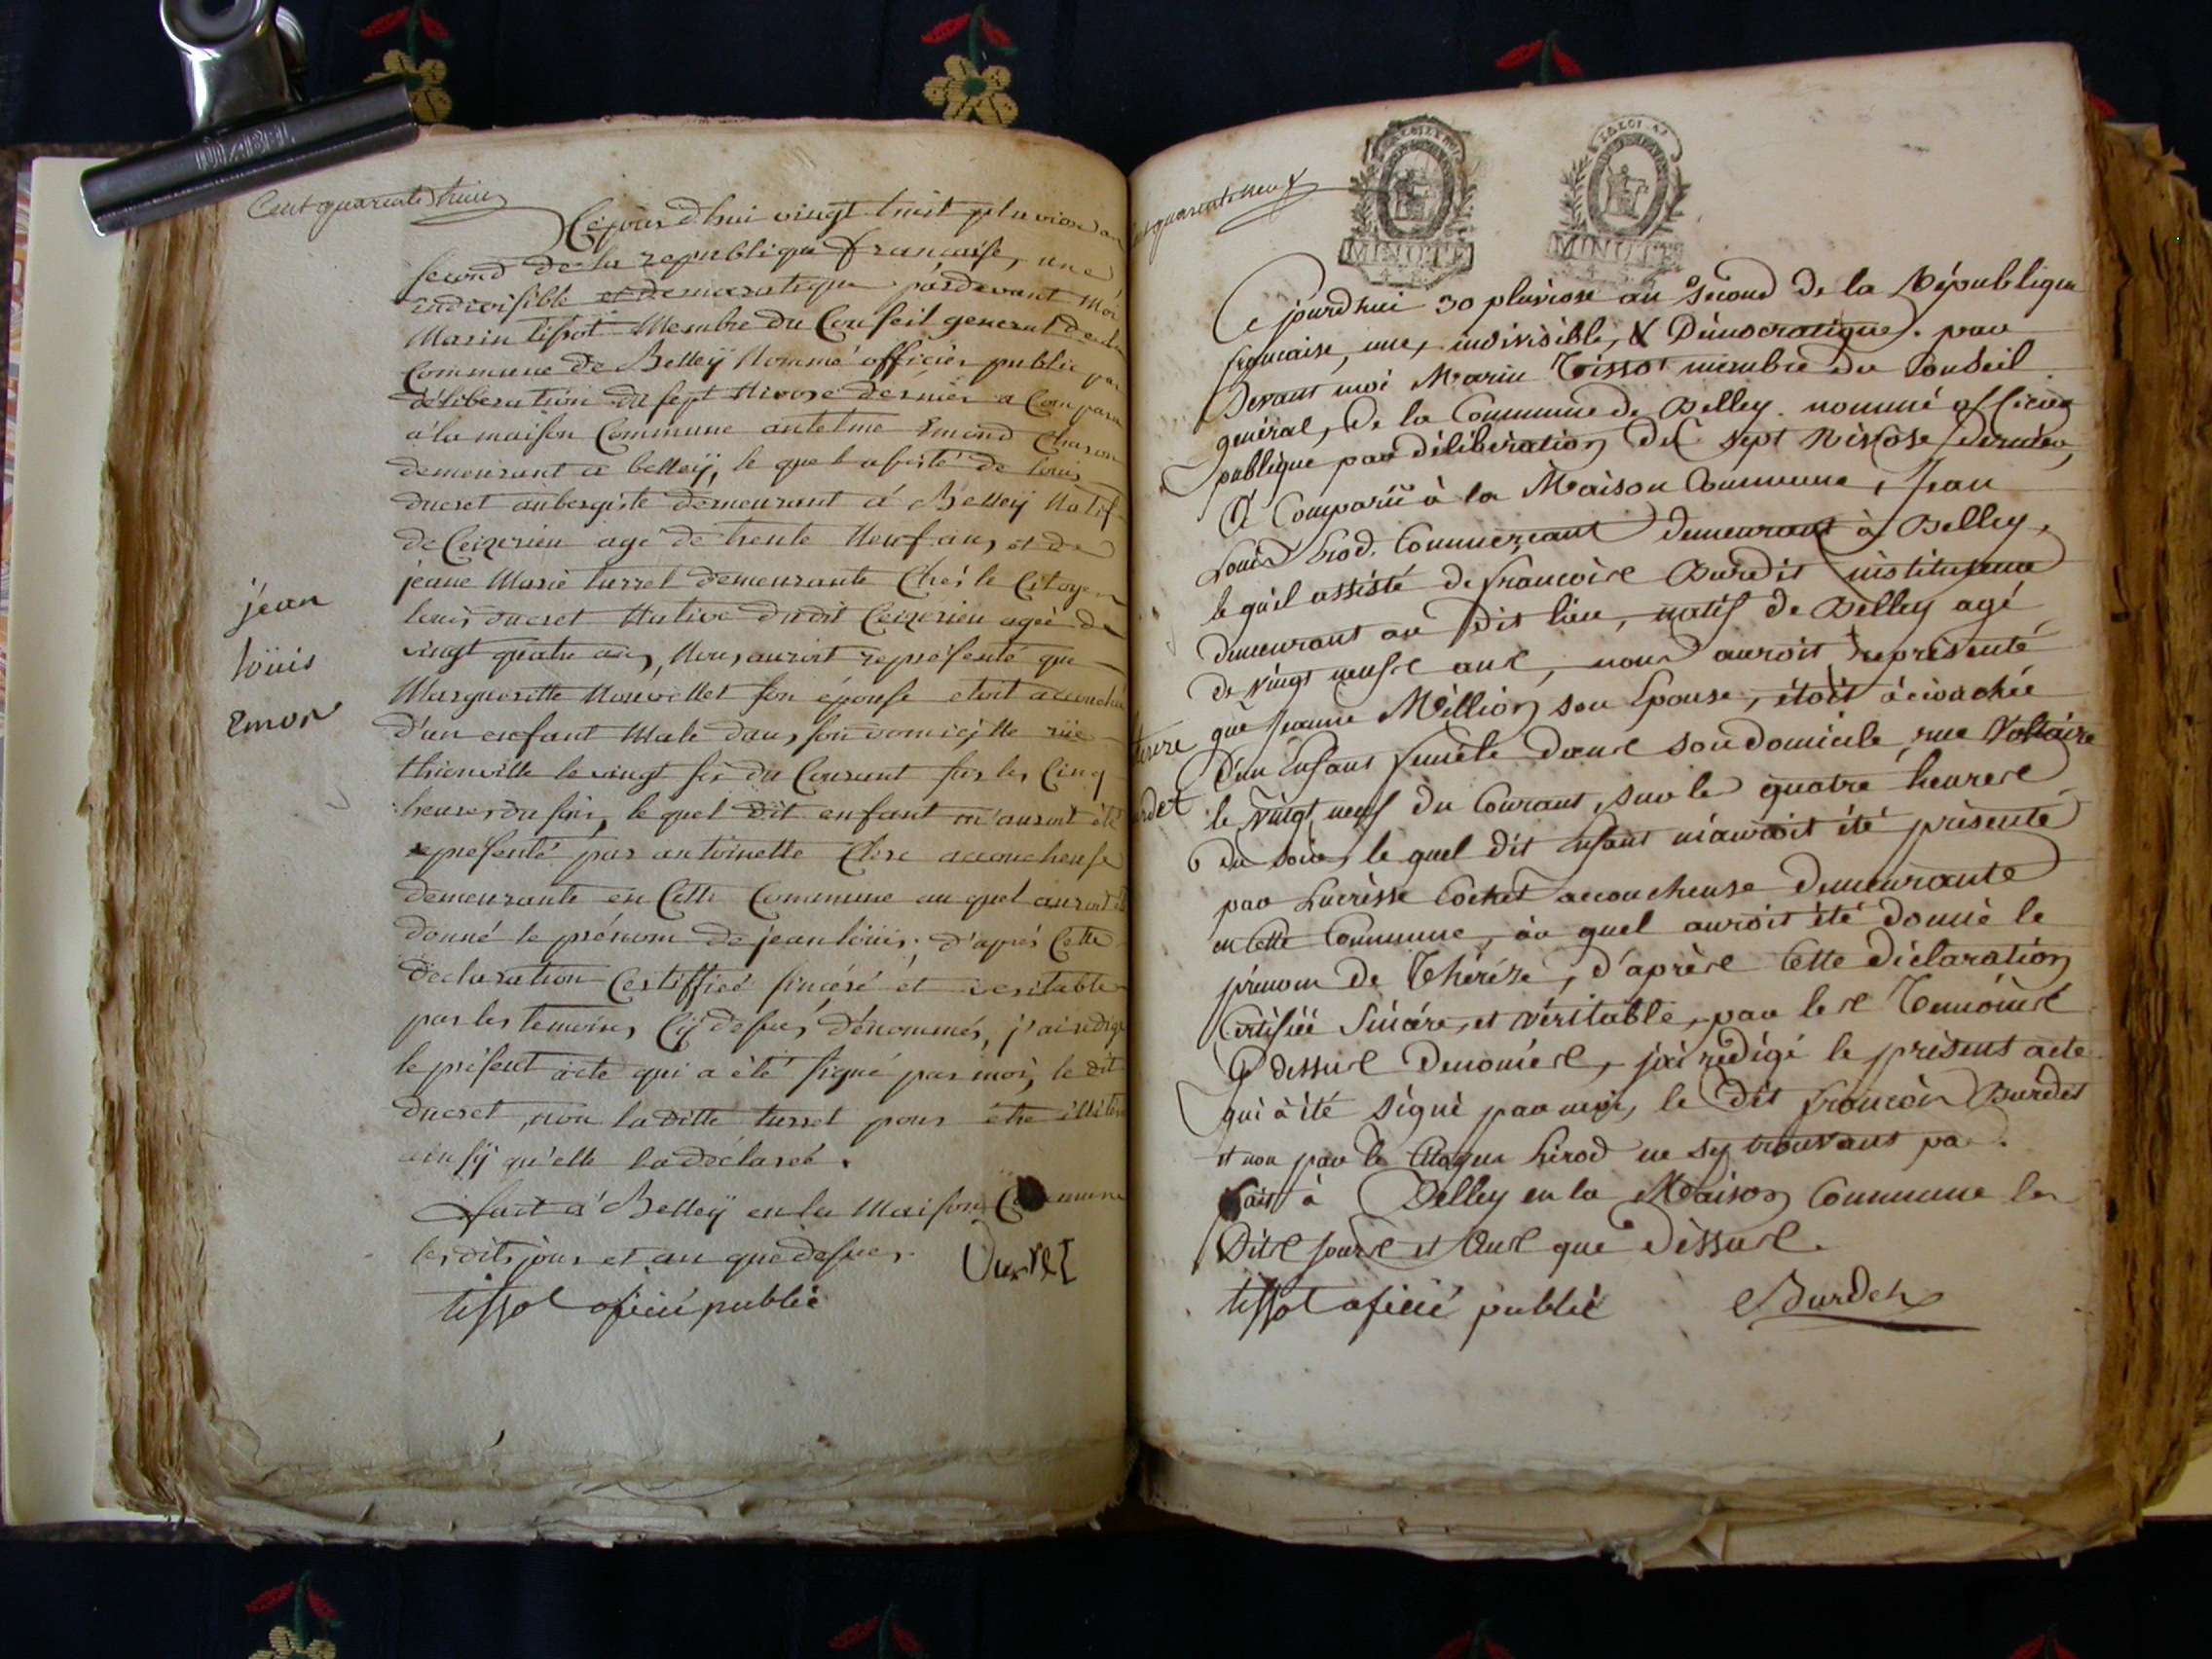 Cent quarante huit
Cejourd'hui vingt huit pluviose an
second de la republique française, une
indivisible et democratique pardevant Moi
Marin tissot Membre du Conseil general de la
Commune de Belleÿ Nommé officier public par
délibération du sept Nivose dernier a Comparu
a la maison Commune antelme Emond Charon
demeurant a belleÿ, le quel assisté de louis
ducret aubergiste demeurant á Belleÿ Natif
de Ceizerieu agé de trente Neuf ans et de
jeane Marie turrel demeurante Chés le Citoyen
louis ducret Native dudit Ceizerieu ageé de
vingt quatre ans, Nous auroit représenté que
Margueritte son épouse etoit accouchée
d'un enfant Male dans son domicille rüe
thionville le vingt six du Courant sur les Cinq
heures du soir, le quel dit enfant m'auroit été
représenté par antoinette Clerc accoucheuse
demeurante en Cette Commune au quel auroit été
donné le prénom de jean loüis; d'aprés Cette
declaration Certiffieé sincére et veritable
par les temoins Cÿ dessus dénommés, j'ai redigé
le présent acte qui a èté signé par moi, le dit
ducret, non la ditte turrel pour étre illitérée
ainsÿ qu'elle l'a déclaré.
fait a Belleÿ en la Maison Commune
les dits jour et an que dessus.
Ducret
tissot oficié publié
jean
loüis
emon
MINUTE
MINUTE
Ce jourdhui 30 pluviose an Second de la République
française, une, indivisible, & Démocratique. par
Devant moi Marin Tissot membre du Conseil
genéral, de la Commune de Belley. nommé officier
publique par délibération du sept Nivose dernier,
A Comparû à la Maison Commune, Jean
Louis hérod, Commerçant demeurant à Belley,
le quel assisté de françois Burdet instituteur
demeurant au dit lieu, natif de Belley agé
de vingt neufs ans, nous auroit représenté
que Jeanne Million son Epouse, étoit àccouchée
D'un Enfant femèle dans son domicile, rue Voltaire
le vingt neuf du Courant, sur les quatre heures
du soir, le quel dit Enfant m'auroit été présenté
par Lucrèsse Cochet accoucheuse demeurante
en Cette Commune, au quel auroit été donné le
prénom de Thérèze, d'après Cette Déclaration
Certifiée Sincére, et véritable, par les Temoins
Cy dessus Denomés, j'ai rédigé le présent acte
qui à été signé par moi, le Dit françois Burdet
et non par le Citoyen hérod ne sy trouvant pas.
fait à Belley en la Maison Commune les
Dits Jours et Ans que dèssus.
tissot oficié publié
Burdet